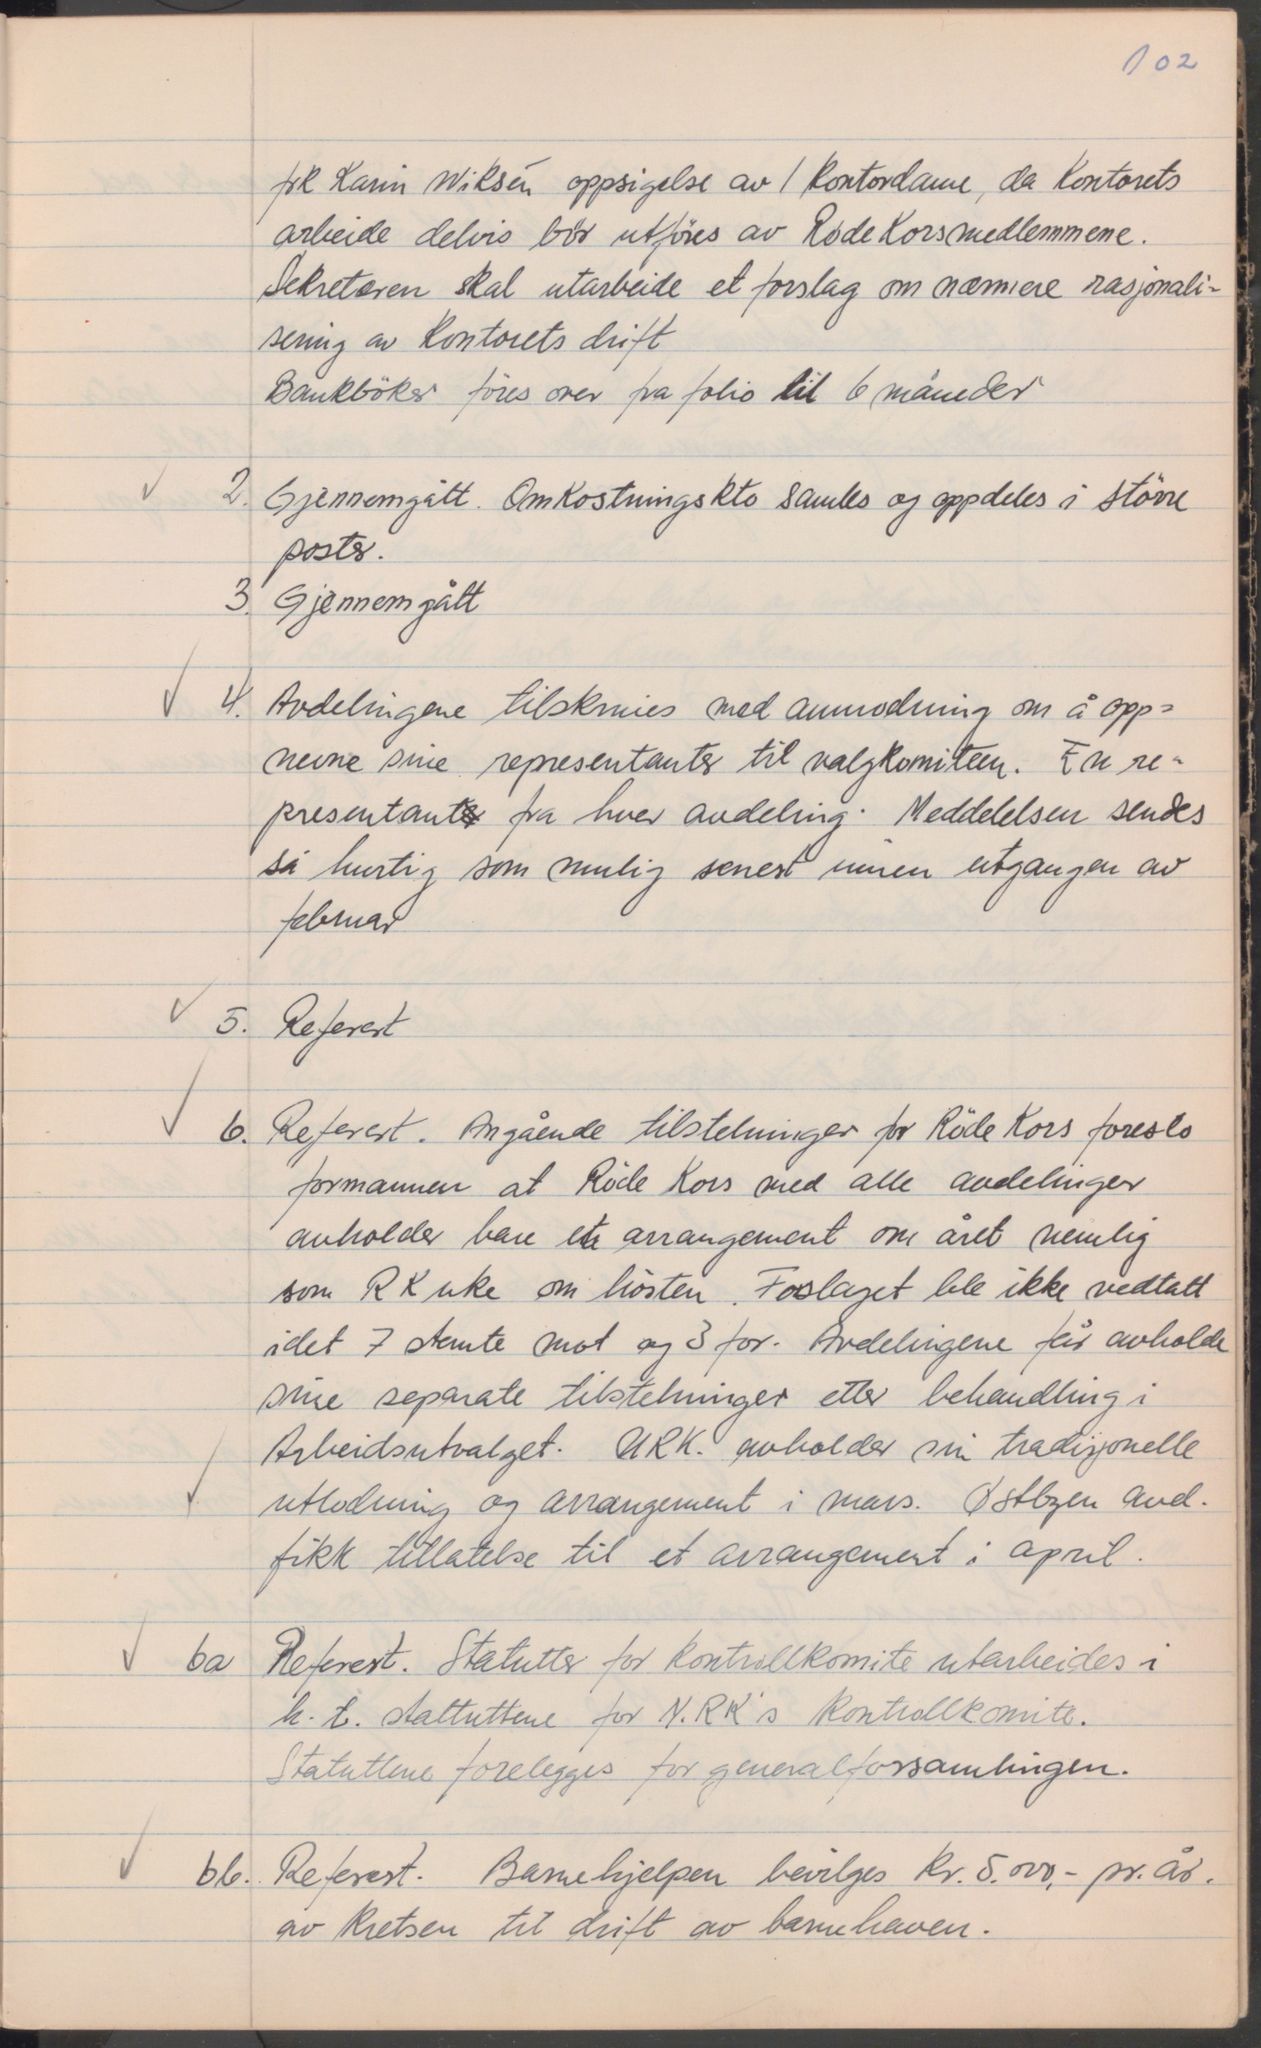 102
frk Karin Wiksén oppsigelse av 1 kontordame, da kontorets
arbeide delvis bör utföres av Röde Korsmedlemmene.
Sekretæren skal utarbeide et forslag om nærmere rasjonali-
sering av kontorets drift
Bankböker föres over fra folio til 6 måneder
2. Gjennemgått. Omkostningskto samles og oppdeles i större
poster.
3. Gjennemgått
4. Avdelingene tilskrives med anmodning om å opp=
nevne sine representanter til valgkomiteen. En re-
presentant fra hver avdeling. Meddelelsen sendes
så hurtig som mulig senest innen utgangen av
februar
5. Referert
6. Referert. Angående tilstelninger for Röde Kors foreslo
formannen at Röde Kors med alle avdelinger
avholder bare ett arrangement om året nemlig
som RK uke om hösten. Foslaget ble ikke vedtatt
idet 7 stemte mot og 3 for. Avdelingene får avholde
sine separate tilstelninger etter behandling i
Arbeidsutvalget. URK. avholder sin tradisjonelle
utlodning og arrangement i mars. Østbyen avd.
fikk tillatelse til et arrangement i april.
6a Referert. Statutter for kontrollkomite utarbeides i
h. t. stattuttene for N.RK's kontrollkomite.
Statuttene forelegges for generalforsamlingen.
6b. Referert. Barnehjelpen bevilges kr. 5.000,- pr. år.
av kretsen til drift av barnehaven.